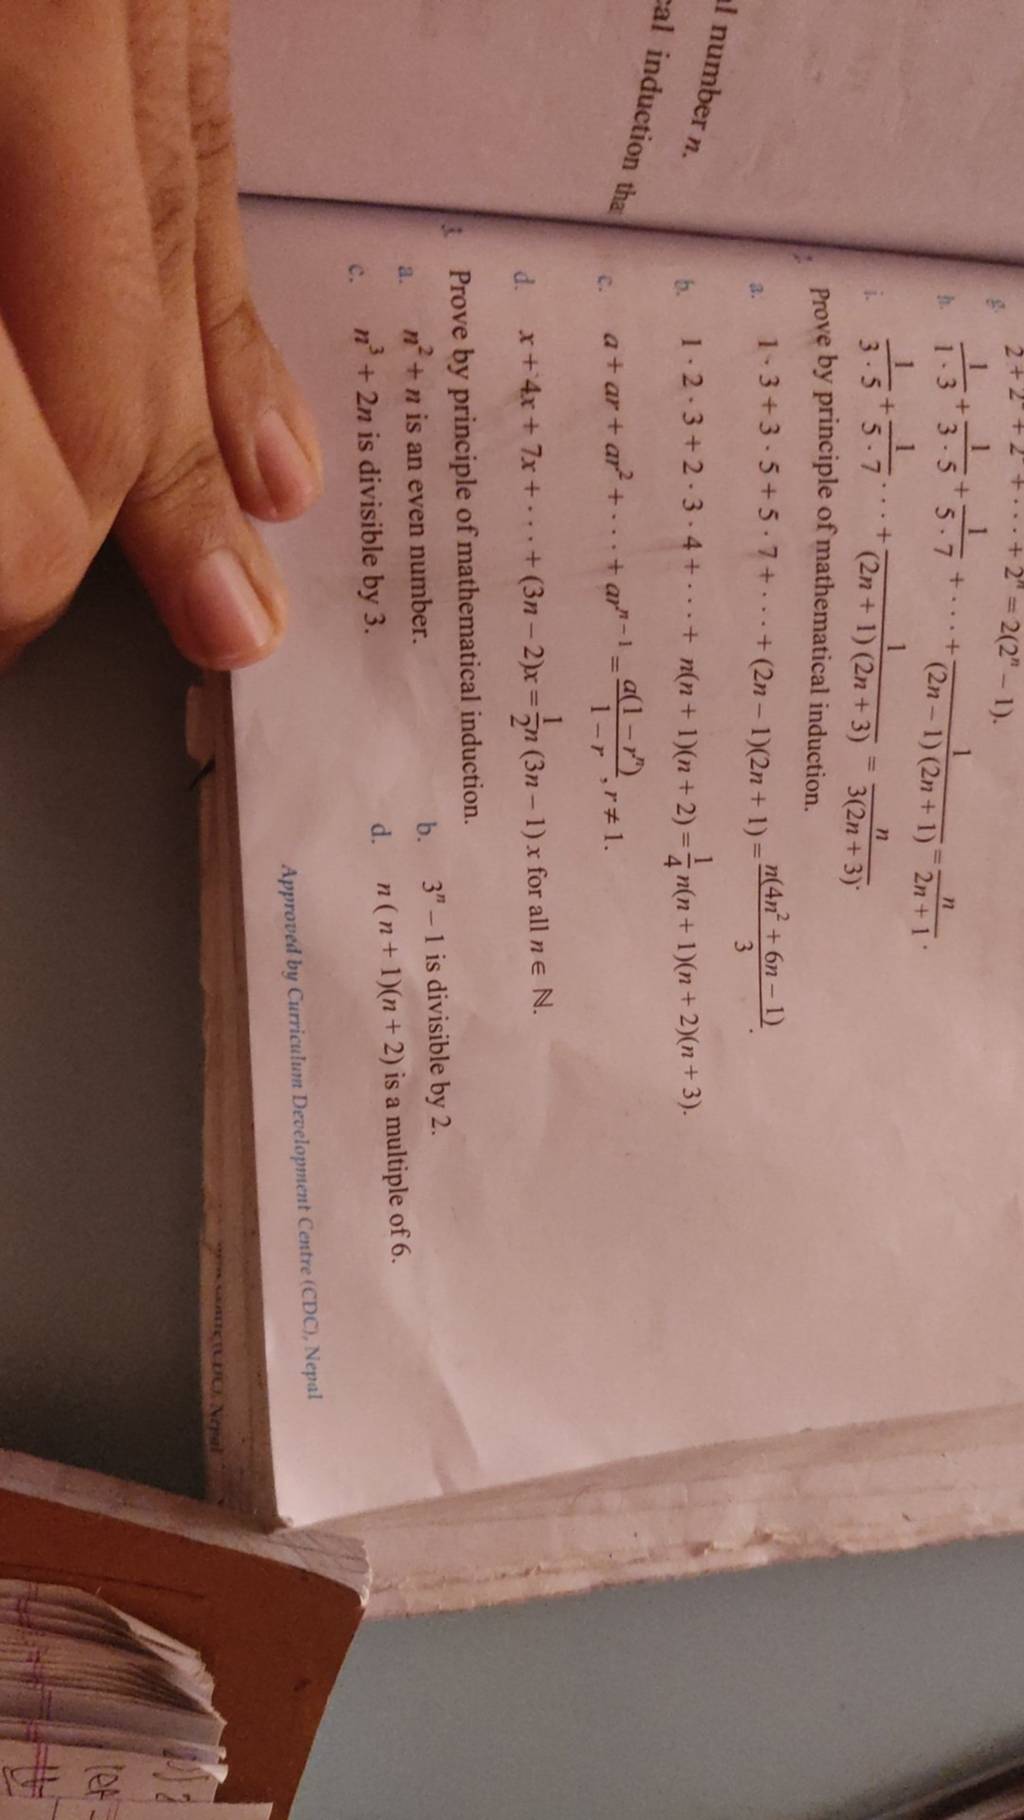 l number n.
cal induction tha
g. 2 + 2² + 2³ + . . . + 2ⁿ = 2(2ⁿ – 1).
h. 1/(1 · 3) + 1/(3 · 5) + 1/(5 · 7) + . . . + 1/((2n – 1) (2n + 1)) = n/(2n + 1).
i. 1/(3 · 5) + 1/(5 · 7) . . . + 1/((2n + 1) (2n + 3)) = n/(3(2n + 3)).
Prove by principle of mathematical induction.
a. 1 · 3 + 3 · 5 + 5 · 7 + . . . + (2n – 1)(2n + 1) = n(4n² + 6n – 1)/3.
b. 1 · 2 · 3 + 2 · 3 · 4 + . . . + n(n + 1)(n + 2) = 1/4 n(n + 1)(n + 2)(n + 3).
c. a + ar + ar² + . . . + arⁿ⁻¹ = a(1 – rⁿ)/(1 – r), r ≠ 1.
d. x + 4x + 7x + . . . + (3n – 2)x = 1/2 n (3n – 1) x for all n ∈ ℕ.
3. Prove by principle of mathematical induction.
a. n² + n is an even number. b. 3ⁿ – 1 is divisible by 2.
c. n³ + 2n is divisible by 3. d. n ( n + 1)(n + 2) is a multiple of 6.
Approved by Curriculum Development Centre (CDC), Nepal
Nepal